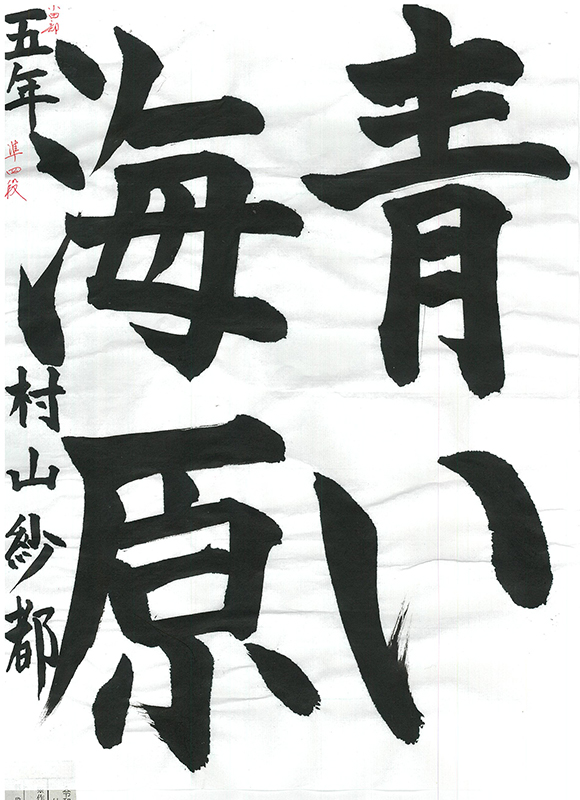 青い
海原
五年 村山紗都
準四段